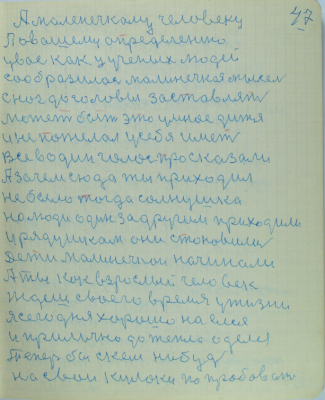 47
А маленечкому человеку
По вашему определению
у вас как у учених людй
сообразилас малинечкая мысел
с ног до головы заставлят
может быт это умное дитя
и не пожелал у себя имет
Все в один голос про сказали
А зачем сюда ти приходил
не было тогда солнушка
на люди один за другим приходили
и рядишкам они становили
Дети малинечкои начинали
А ты как взрослий человек
ждеш своего времея у жизни
я сегодня хорошо на елся
и прилично до тепла оделся
Тепер би с кем нибуд
на свои кулаки по пробоват